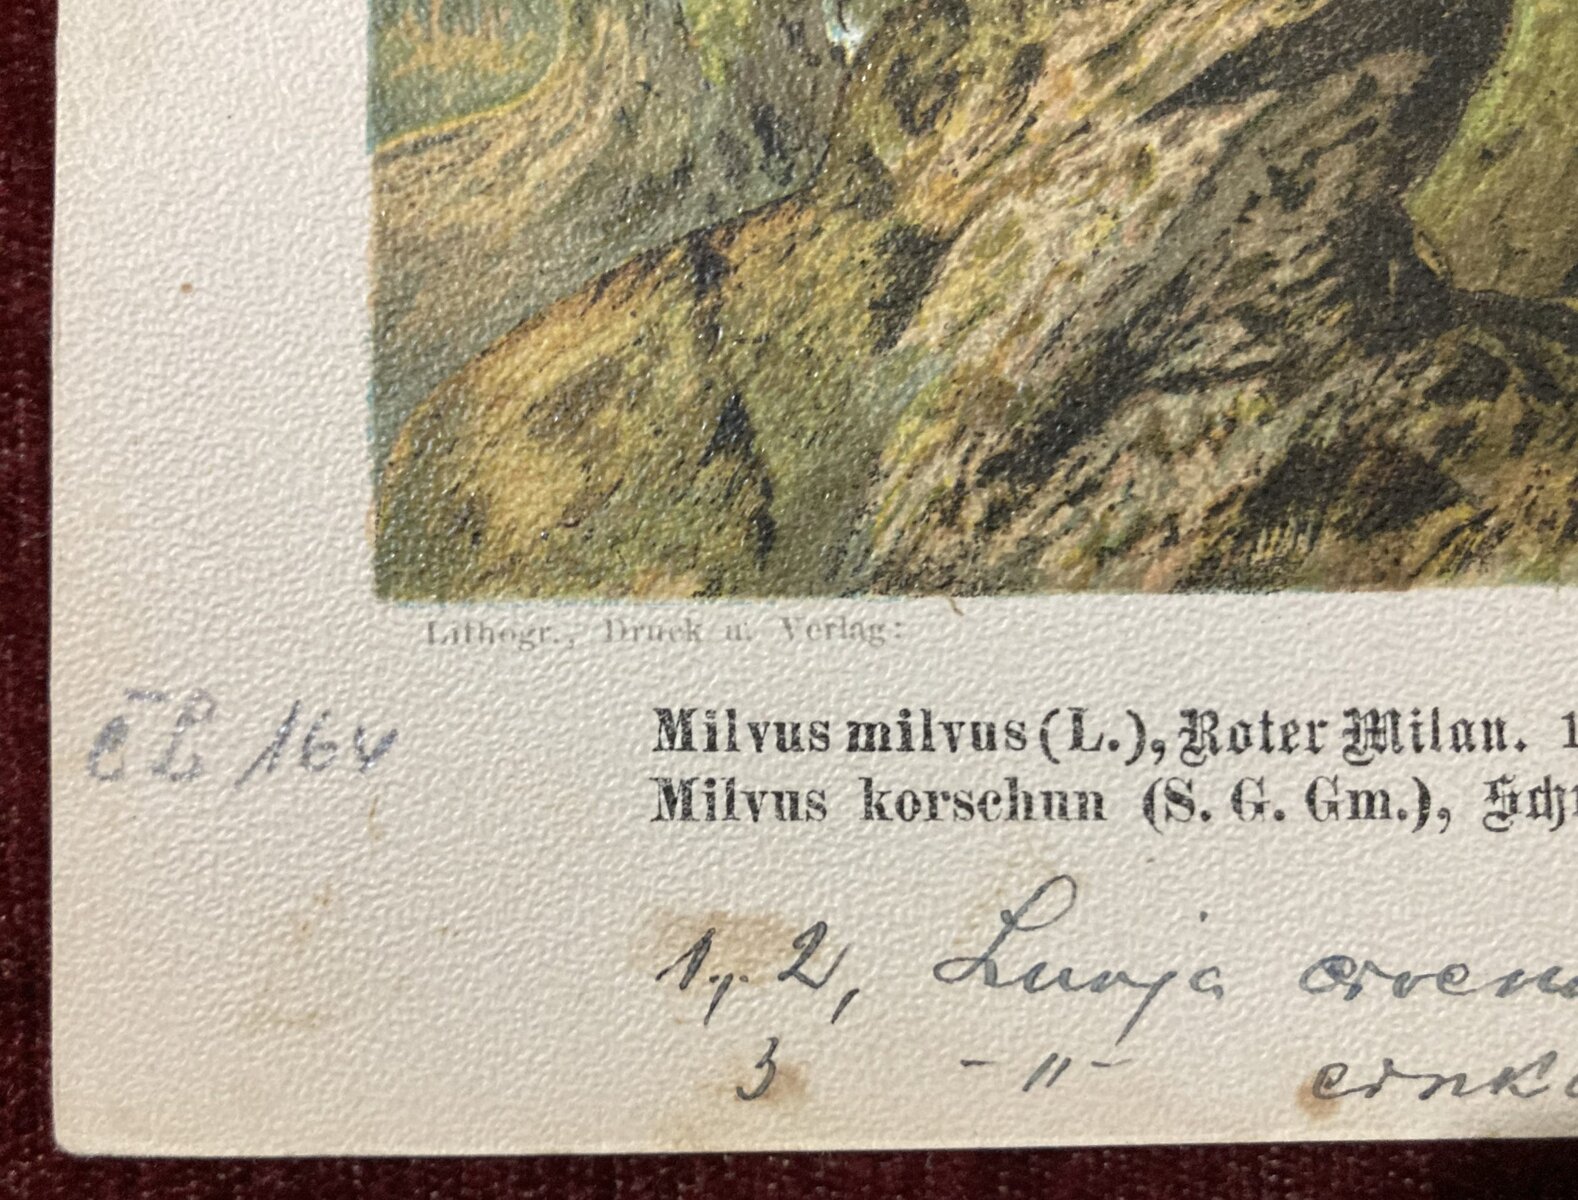 Lithogr., Druck u. Verlag:
Milvus milvus (L.), Roter Milan. 1
Milvus korschun (S. G. Gm.), Sch
164
1, 2, Lunja crven
3 -"- crnk